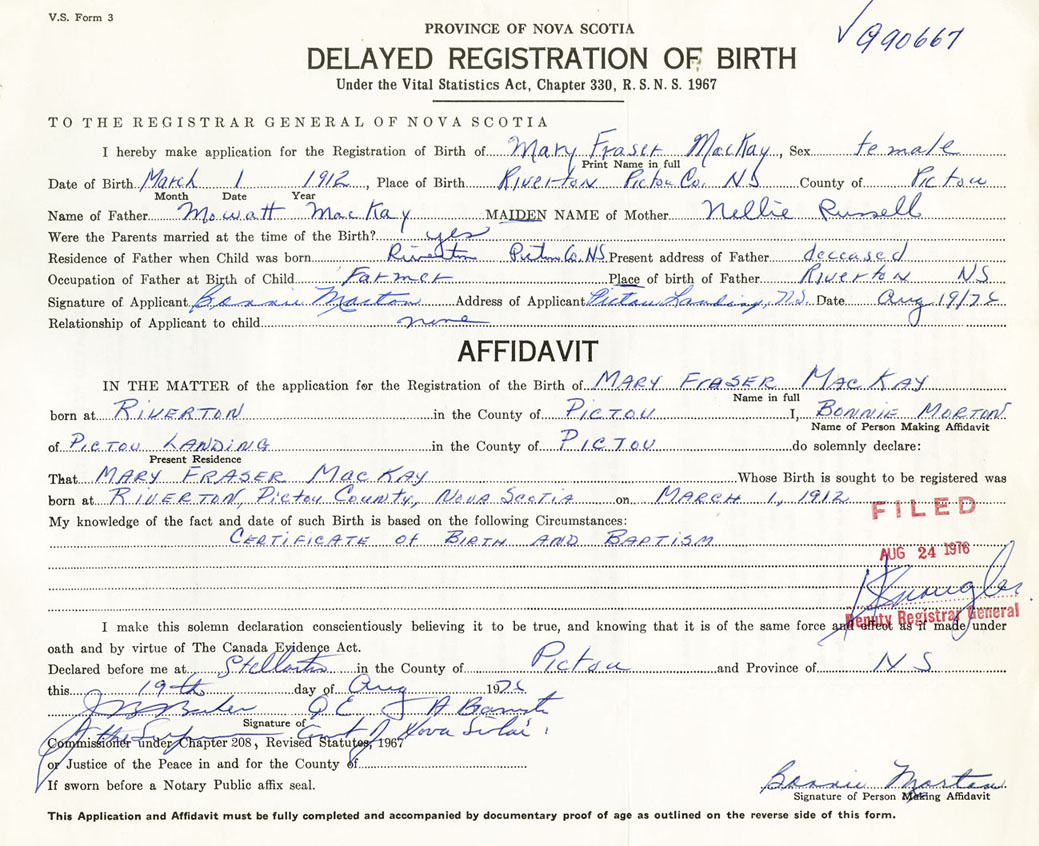 V.S. Form 3
990667
PROVINCE OF NOVA SCOTIA
DELAYED REGISTRATION OF BIRTH
Under the Vital Statistics Act, Chapter 330, R.S.N.S. 1967
TO THE REGISTRAR GENERAL OF NOVA SCOTIA
I hereby make application for the Registration of Birth of Mary Fraser MacKay, Sex female
Print Name in full
Date of Birth March 1 1912, Place of Birth Riverton Pictou Co. NS County of Pictou
Month Date Year
Name of Father Mowatt MacKay MAIDEN NAME of Mother Nellie Russell
Were the Parents married at the time of the Birth? yes
Residence of Father when Child was born Riverton Pictou Co. NS. Present address of Father deceased
Occupation of Father at Birth of Child Farmer Place of birth of Father Riverton NS
Signature of Applicant Bonnie Morton Address of Applicant Pictou Landing, N.S. Date Aug 19/76
Relationship of Applicant to child none
AFFIDAVIT
IN THE MATTER of the application for the Registration of the Birth of MARY FRASER MACKAY
Name in full
born at RIVERTON in the County of PICTOU I, BONNIE MORTON
Name of Person Making Affidavit
of PICTOU LANDING in the County of PICTOU do solemnly declare:
Present Residence
That MARY FRASER MACKAY Whose Birth is sought to be registered was
born at RIVERTON, PICTOU COUNTY, NOVA SCOTIA on MARCH 1, 1912
FILED
My knowledge of the fact and date of such Birth is based on the following Circumstances:
CERTIFICATE OF BIRTH AND BAPTISM
AUG 24 1976
Deputy Registrar General
I make this solemn declaration conscientiously believing it to be true, and knowing that it is of the same force and effect as if made under
oath and by virtue of The Canada Evidence Act.
Declared before me at Stellarton in the County of Pictou and Province of NS
this 19th day of Aug 1976
Signature of
Commissioner under Chapter 208, Revised Statutes, 1967
or Justice of the Peace in and for the County of
If sworn before a Notary Public affix seal.
Bonnie Morton
Signature of Person Making Affidavit
This Application and Affidavit must be fully completed and accompanied by documentary proof of age as outlined on the reverse side of this form.